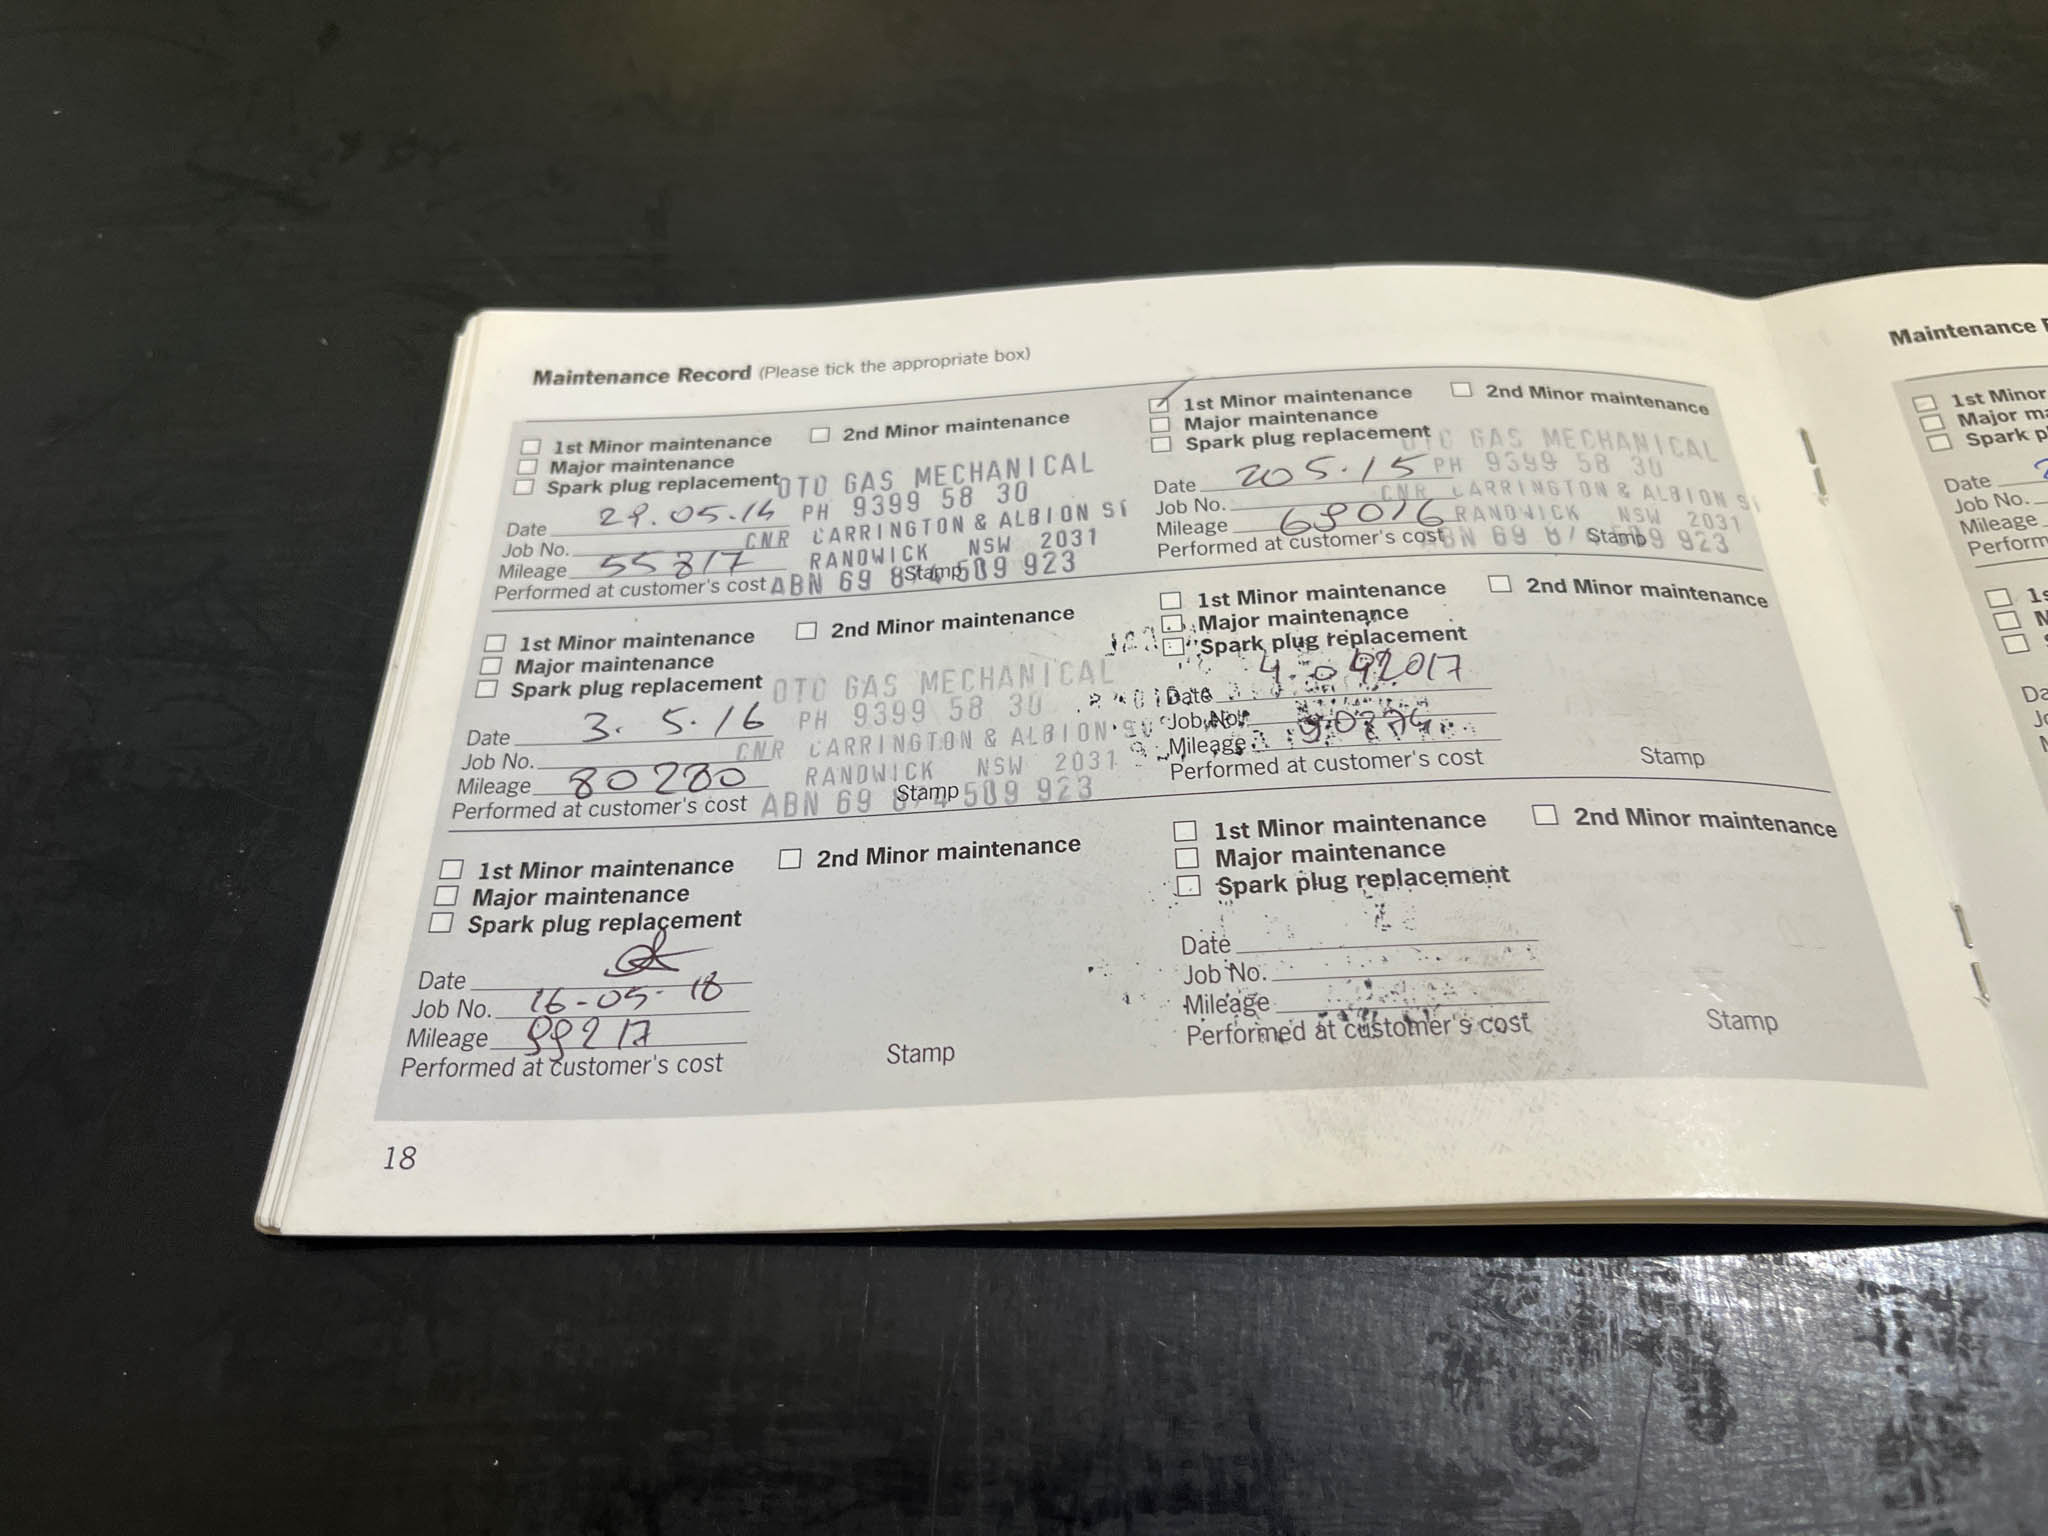 Maintenance Record (Please tick the appropriate box)
1st Minor maintenance 2nd Minor maintenance
Major maintenance
Spark plug replacement
OTO GAS MECHANICAL
PH 9399 58 30
CNR CARRINGTON & ALBION ST
RANDWICK NSW 2031
ABN 69 874 509 923
Date 29.05.14
Job No.
Mileage 55817
Performed at customer's cost Stamp
1st Minor maintenance 2nd Minor maintenance
Major maintenance
Spark plug replacement
OTO GAS MECHANICAL
PH 9399 58 30
CNR CARRINGTON & ALBION ST
RANDWICK NSW 2031
ABN 69 874 509 923
Date 205.15
Job No.
Mileage 68016
Performed at customer's cost Stamp
1st Minor maintenance 2nd Minor maintenance
Major maintenance
Spark plug replacement
OTO GAS MECHANICAL
PH 9399 58 30
CNR CARRINGTON & ALBION ST
RANDWICK NSW 2031
ABN 69 874 509 923
Date 3.5.16
Job No.
Mileage 80280
Performed at customer's cost Stamp
1st Minor maintenance 2nd Minor maintenance
Major maintenance
Spark plug replacement
Date
Job No.
Mileage
Performed at customer's cost Stamp
1st Minor maintenance 2nd Minor maintenance
Major maintenance
Spark plug replacement
Date
Job No. 16-05-18
Mileage 99217
Performed at customer's cost Stamp
1st Minor maintenance 2nd Minor maintenance
Major maintenance
Spark plug replacement
Date
Job No.
Mileage
Performed at customer's cost Stamp
18
Maintenance
1st Minor
Major
Spark
Date
Job No.
Mileage